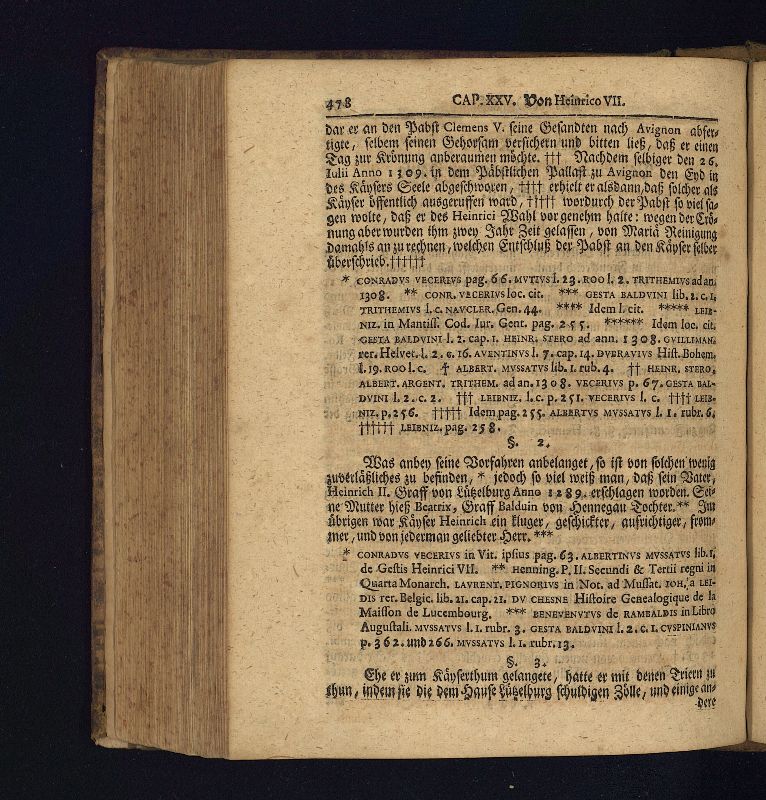 478 CAP. XXV. Von Heinrico VII.
dar er an den Pabst Clemens V. seine Gesandten nach Avignon abfer-
tigte, selbem seinen Gehorsam versichern und bitten ließ, daß er einen
Tag zur Krönung anberaumen möchte. ††† Nachdem selbiger den 26.
Iulii Anno 1309. in dem Päbstlichen Pallast zu Avignon den Eyd in
des Käysers Seele abgeschworen, †††† erhielt er alsdann, daß solcher als
Käyser öffentlich ausgeruffen ward, ††††† wordurch der Pabst so viel sa-
gen wolte, daß er des Heinrici Wahl vor genehm halte: wegen der Crö-
nung aber wurden ihm zwey Jahr Zeit gelassen, von Mariä Reinigung
damahls an zu rechnen, welchen Entschluß der Pabst an den Käyser selber
überschrieb.††††††
* CONRADVS VECERIVS pag. 66. MVTIVS l. 23. ROO l. 2. TRITHEMIVS ad an.
1308. ** CONR. VECERIVS loc. cit. *** GESTA BALDVINI lib. 2. c. 1.
TRITHEMIVS l. c. NAVCLER. Gen. 44. **** Idem l. cit. ***** LEIB-
NIZ. in Mantiss. Cod. Iur. Gent. pag. 255. ****** Idem loc. cit.
GESTA BALDVINI l. 2. cap. 1. HEINR. STERO ad ann. 1308. GVILLIMAN.
rer. Helvet. l. 2. c. 16. AVENTINVS l. 7. cap. 14. DVBRAVIVS Hist. Bohem.
l. 19. ROO l. c. † ALBERT. MVSSATVS lib. 1. rub. 4. †† HEINR. STERO,
ALBERT. ARGENT. TRITHEM. ad an. 1308. VECERIVS p. 67. GESTA BAL-
DVINI l. 2. c. 2. ††† LEIBNIZ. l. c. p. 251. VECERIVS l. c. †††† LEIB-
NIZ. p. 256. ††††† Idem pag. 255. ALBERTVS MVSSATVS l. 1. rubr. 6.
†††††† LEIBNIZ. pag. 258.
§. 2.
Was anbey seine Vorfahren anbelanget, so ist von solchen wenig
zuverläßliches zu befinden, * jedoch so viel weiß man, daß sein Vater,
Heinrich II. Graff von Lützelburg Anno 1289. erschlagen worden. Sei-
ne Mutter hieß Beatrix, Graff Balduin von Hennegau Tochter. ** Im
übrigen war Käyser Heinrich ein kluger, geschickter, aufrichtiger, from-
mer, und von jederman geliebter Herr. ***
* CONRADVS VECERIVS in Vit. ipsius pag. 63. ALBERTINVS MVSSATVS lib. 1.
de Gestis Heinrici VII. ** Henning. P. II. Secundi & Tertii regni in
Quarta Monarch. LAVRENT. PIGNORIVS in Not. ad Mussat. IOH. a LEI-
DIS rer. Belgic. lib. 21. cap. 21. DV CHESNE Histoire Genealogique de la
Maisson de Lucembourg. *** BENEVENVTVS de RAMBALDIS in Libro
Augustali. MVSSATVS l. 1. rubr. 3. GESTA BALDVINI l. 2. c. 1. CVSPINIANVS
p. 362. und 266. MVSSATVS l. 1. rubr. 13.
§. 3.
Ehe er zum Käyserthum gelangete, hatte er mit denen Triern zu
thun, indem sie die dem Hause Lützelburg schuldigen Zölle, und einige an-
dere